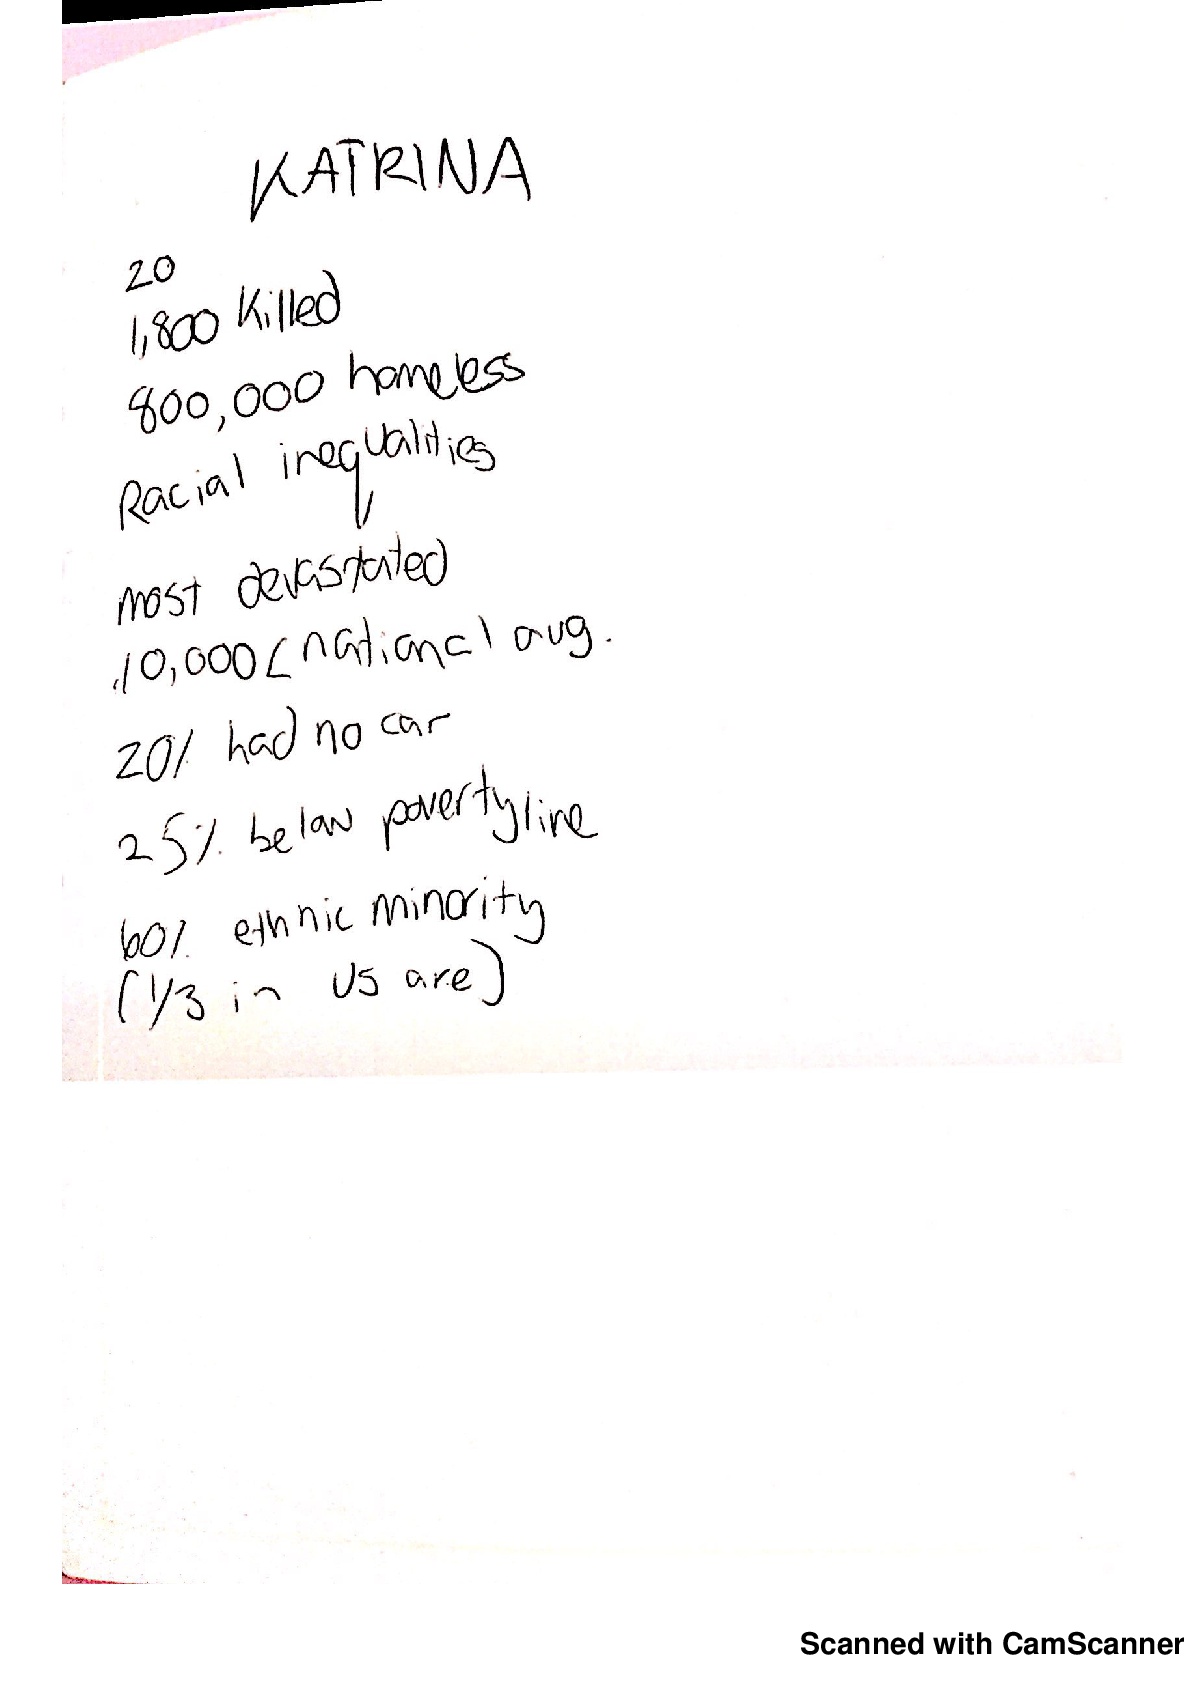 KATRINA
20
1,800 Killed
800,000 homeless
Racial inequalities
most devastated
10,000 < national avg.
20% had no car
25% below poverty line
60% ethnic minority
(1/3 in US are)
Scanned with CamScanner